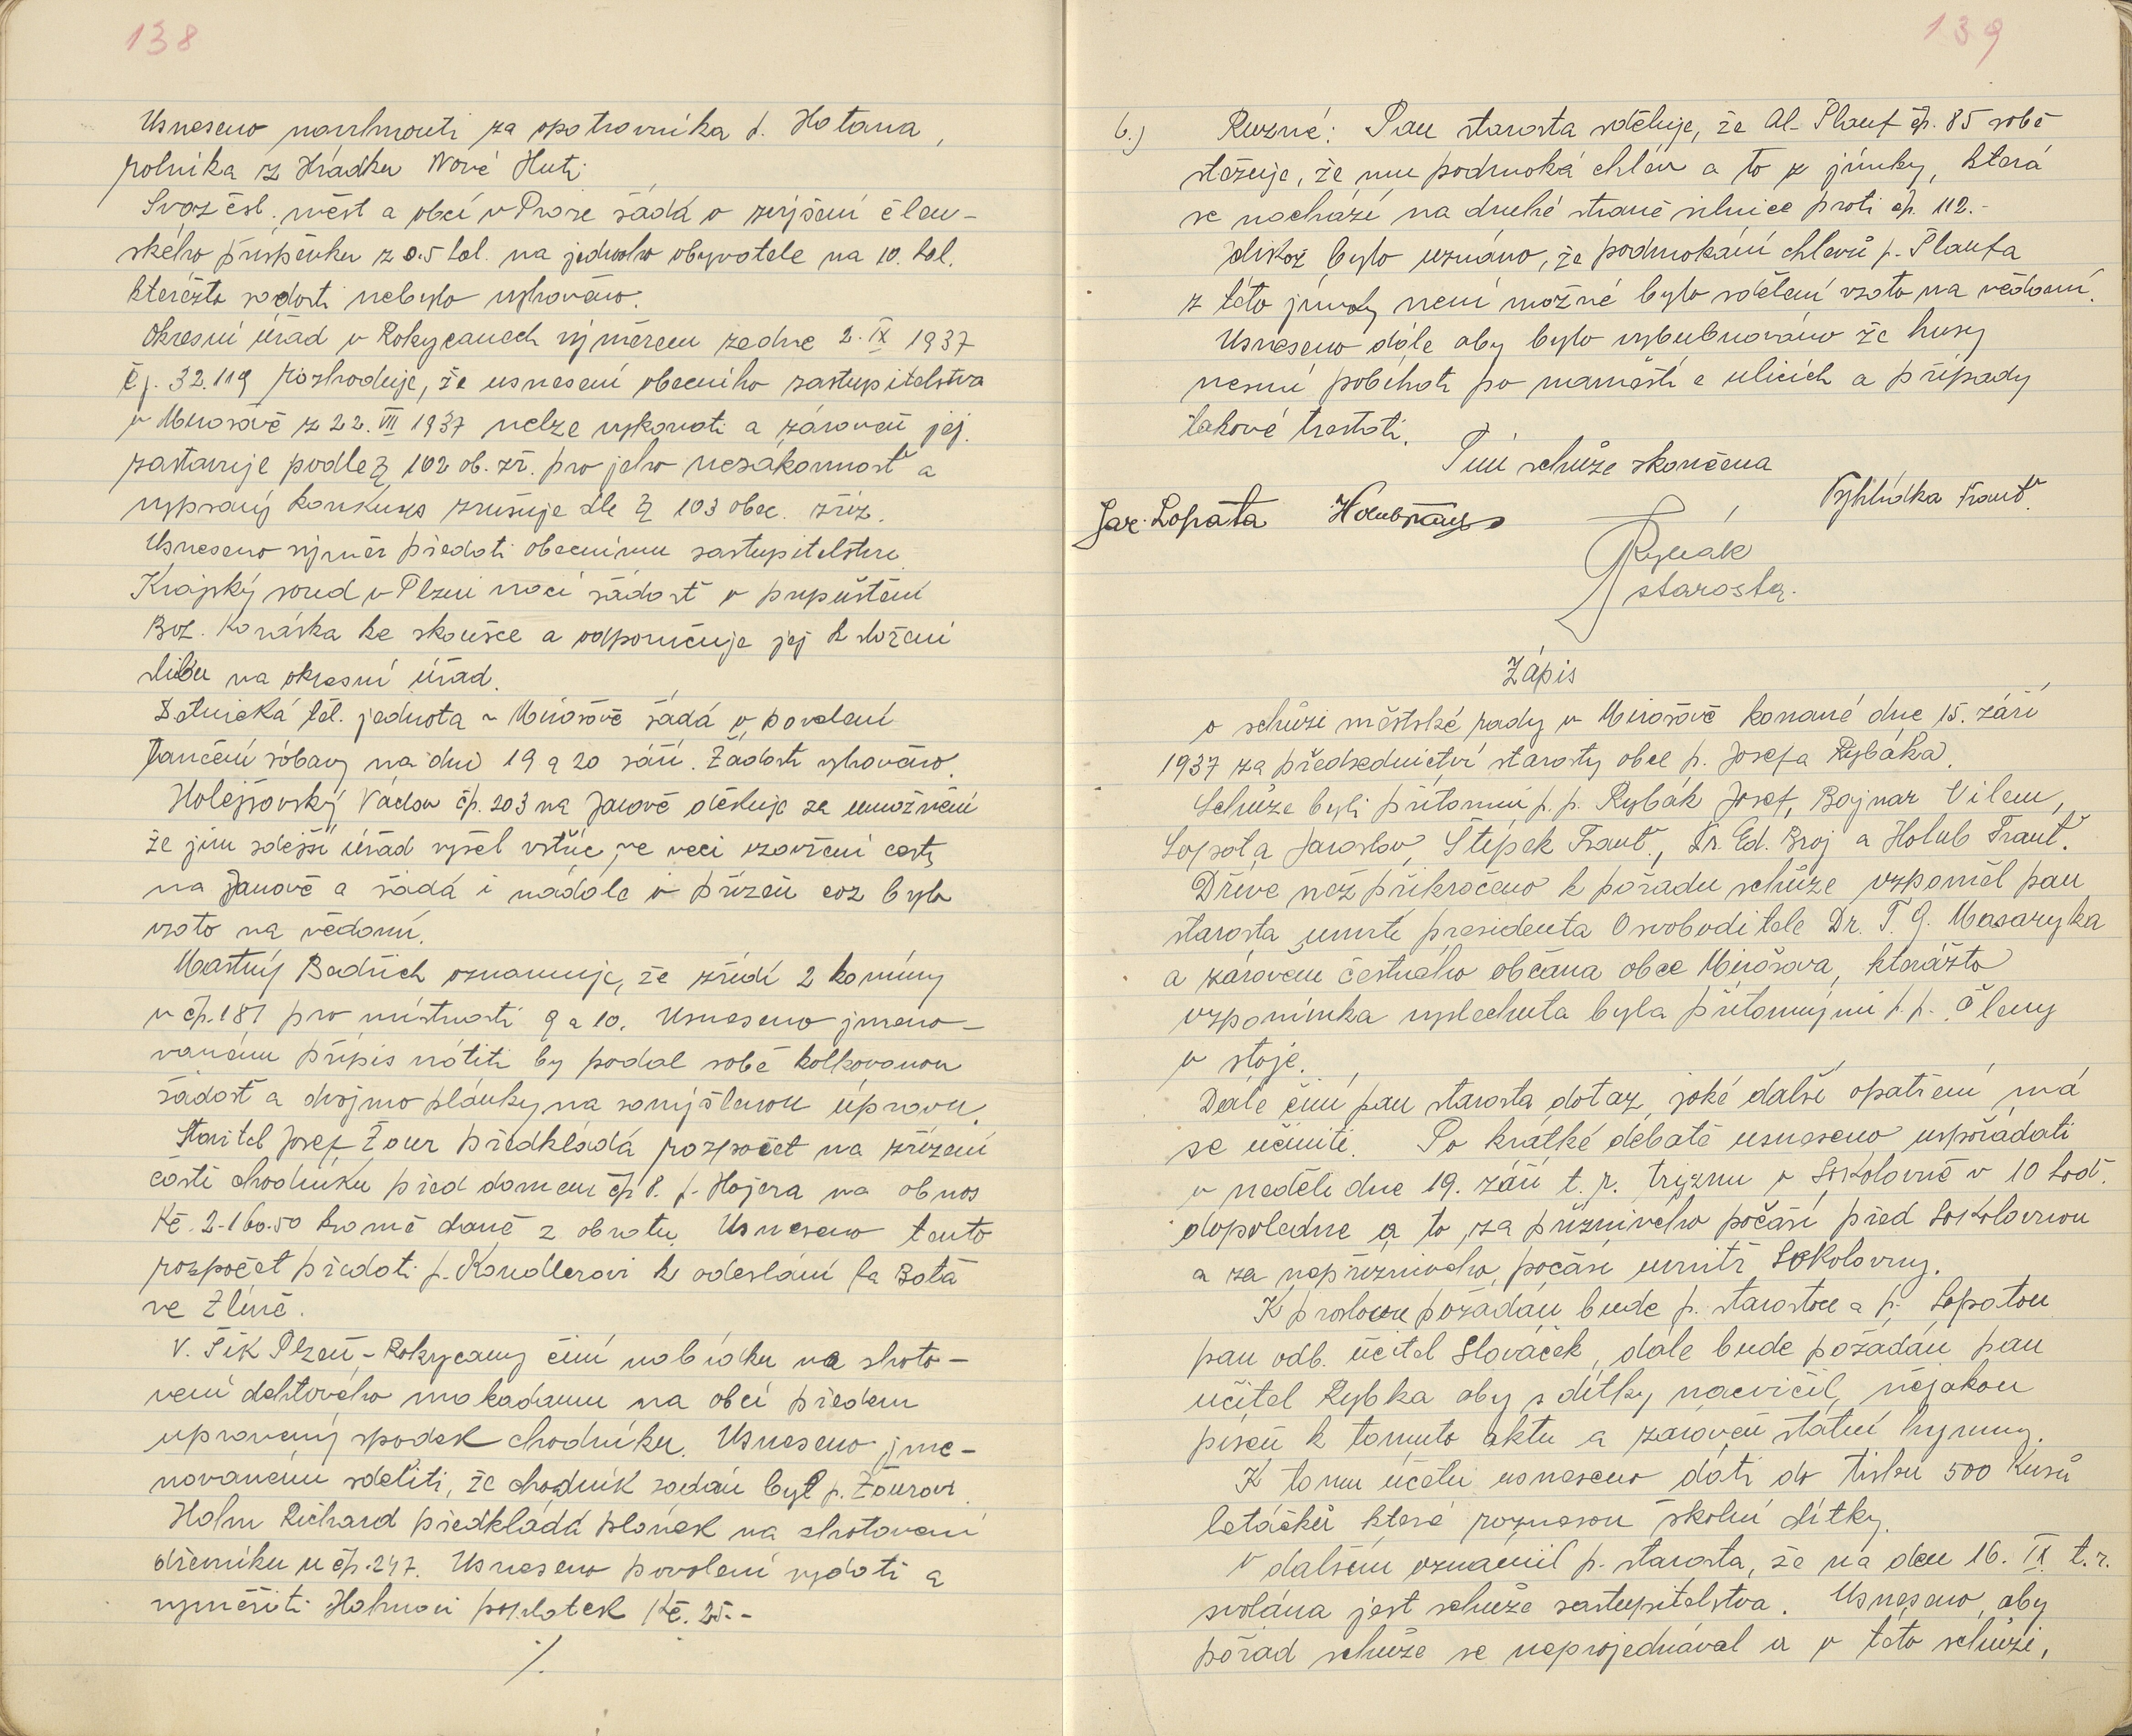 138
Usneseno navrhnouti za opatrovníka p. Hatana,
rolníka z Hrádku Nové Huti.
Svaz čsl. měst a obcí v Praze žádá o zvýšení člen-
ského příspěvku z 0.5 hal. na jednoho obyvatele na 10. hal.
kteréžto žádosti nebylo vyhověno.
Okresní úřad v Rokycanech výměrem ze dne 2. IX 1937
čj. 32.119 rozhoduje, že usnesení obecního zastupitelstva
v Mirošově z 22. VII 1937 nelze vykonati a zároveň jej
zastavuje podle § 102 ob. zř. pro jeho nezákonnost a
vypsaný konkurs zrušuje dle § 103 obec. zříz.
Usneseno výměr předati obecnímu zastupitelstvu.
Krajský soud v Plzni vrací žádost o připuštění
Bož. Kováska ke zkoušce a odporučuje jej k složení
slibu na okresní úřad.
Dělnická těl. jednota v Mirošově žádá o povolení
taneční zábavy na dni 19 a 20 září. Žádosti vyhověno.
Holejšovský Václav čp. 203 na Janově děkuje za umožnění
že jim zdejší úřad vyšel vstříc ve věci uzavření cesty
na Janově a žádá i nadále o přízeň což bylo
vzato na vědomí.
Mastný Bedřich oznamuje, že zřídí 2 komíny
v čp. 181 pro místnosti 9 a 10. Usneseno jmeno-
vanému přípis vrátiti by podal sobě kolkovanou
žádost a dvojmo plánky na zamýšlenou úpravu.
Stavitel Josef Žour předkládá rozpočet na zřízení
části chodníku před domem čp 8. p. Hajera na obnos
Kč. 2.160.50 kromě daně z obratu. Usneseno tento
rozpočet předati p. Kandlerovi k odeslání fa Baťa
ve Zlíně.
V. Šik Plzeň - Rokycany činí nabídku na zhoto-
vení dehtového makadamu na obcí předem
upravený spodek chodníku. Usneseno jme-
novanému sděliti, že chodník zadán byl p. Žourovi.
Hahn Richard předkládá plánek na zhotovení
dřevníku u čp. 247. Usneseno povolení vydati a
vyměřiti Hahnovi poplatek Kč. 25.-
./.
139
6.) Různé: Pan starosta sděluje, že Al. Plauf čp. 85 sobě
stěžuje, že mu podmoká chlév a to z jímky, která
se nachází na druhé straně silnice proti čp. 112.-
Jelikož bylo uznáno, že podmokání chlevů p. Plaufa
z této jímky není možné bylo sdělení vzato na vědomí.
Usneseno dále aby bylo vybubnováno že husy
nesmí pobíhati po náměstí a ulicích a případy
takové trestati.
Tím schůze skončena
Jar. Lopata Holub Frant. Vyhlídka Frant.
Rybák
starosta.
Zápis
o schůzi městské rady v Mirošově konané dne 15. září
1937 za předsednictví starosty obce p. Josefa Rybáka.
Schůze byli přítomni p. p. Rybák Josef, Bajnar Vilem,
Lopata Jaroslav, Štěpek Frant., Dr. Ed. Broj a Holub Frant.
Dříve než přikročeno k pořadu schůze vzpoměl pan
starosta úmrtí presidenta Osvoboditele Dr. T. G. Masaryka
a zároveň čestného občana obce Mirošova, kterážto
vzpomínka vyslechnuta byla přítomnými p. p. členy
v stoje.
Dále činí pan starosta dotaz, jaké další opatření má
se učiniti. Po krátké debatě usneseno uspořádati
v neděli dne 19. září t. r. tryznu v Sokolovně v 10 hod.
dopoledne a to za příznivého počasí před Sokolovnou
a za nepříznivého počasí uvnitř Sokolovny.
K proslovu požádán bude p. starostou a p. Lopatou
pan odb. učitel Slováček, dále bude požádán pan
učitel Rybka aby s dítky nacvičil nějakou
píseň k tomuto aktu a zároveň státní hymny.
K tomu účelu usneseno dáti do tisku 500 kusů
letáčků které roznesou školní dítky.
V dalším oznámil p. starosta, že na den 16. IX. t. r.
svolána jest schůze zastupitelstva. Usneseno, aby
pořad schůze se neprojednával a v této schůzi,